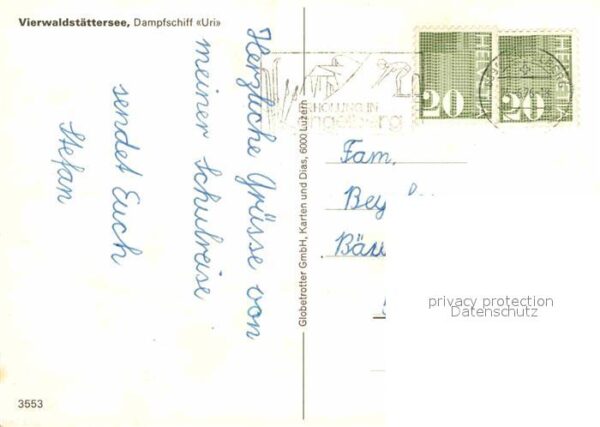 Vierwaldstättersee, Dampfschiff «Uri»
Herzliche Grüsse von
meiner Schulreise
sendet Euch
Stefan
3553
Globetrotter GmbH, Karten und Dias, 6000 Luzern
ERHOLUNG IN
Engelberg
HELVETIA
20
HELVETIA
20
Fam.
Bey
Bäu
privacy protection
Datenschutz